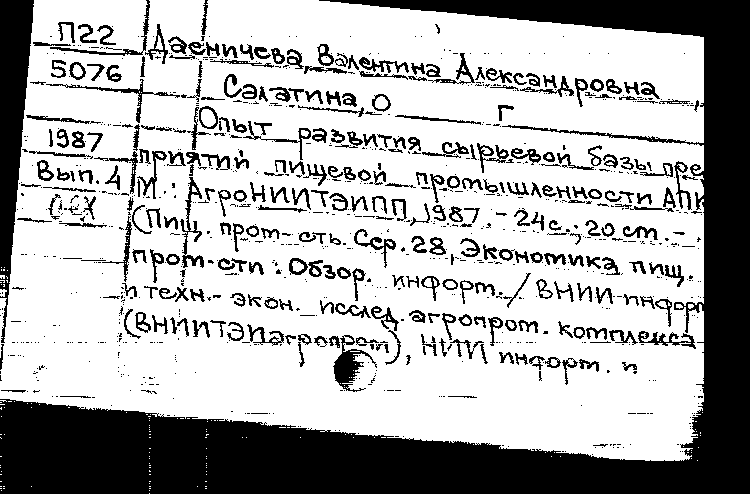 П22 Даеничева, Валентина Александровна
5076 Салатина, О Г
Опыт развития сырьевой базы пре
1987 приятий пищевой промышленности АПК
Вып. 4 М.: АгроНИИТЭИПП, 1987. - 24с.; 20 см. -
ОЕХ (Пищ. пром-сть. Сер. 28, Экономика пищ.
пром-сти : Обзор. информ. / ВНИИ информ
и техн.- экон. исслед. агропром. комплекса
(ВНИИТЭИагропром), НИИ информ. и